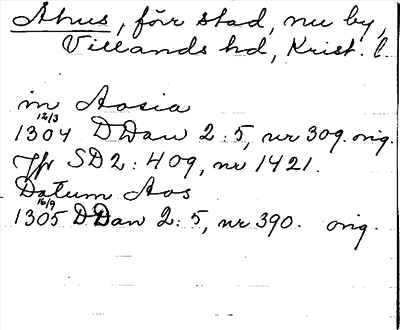 Åhus, förr stad, nu by,
Villands hd, Krist. l.
in Aosia
12/3
1304 DDan 2:5, nr 309. orig.
Jfr SD 2: 409, nr 1421.
Datum Aos
16/9
1305 DDan 2:5, nr 390. orig.